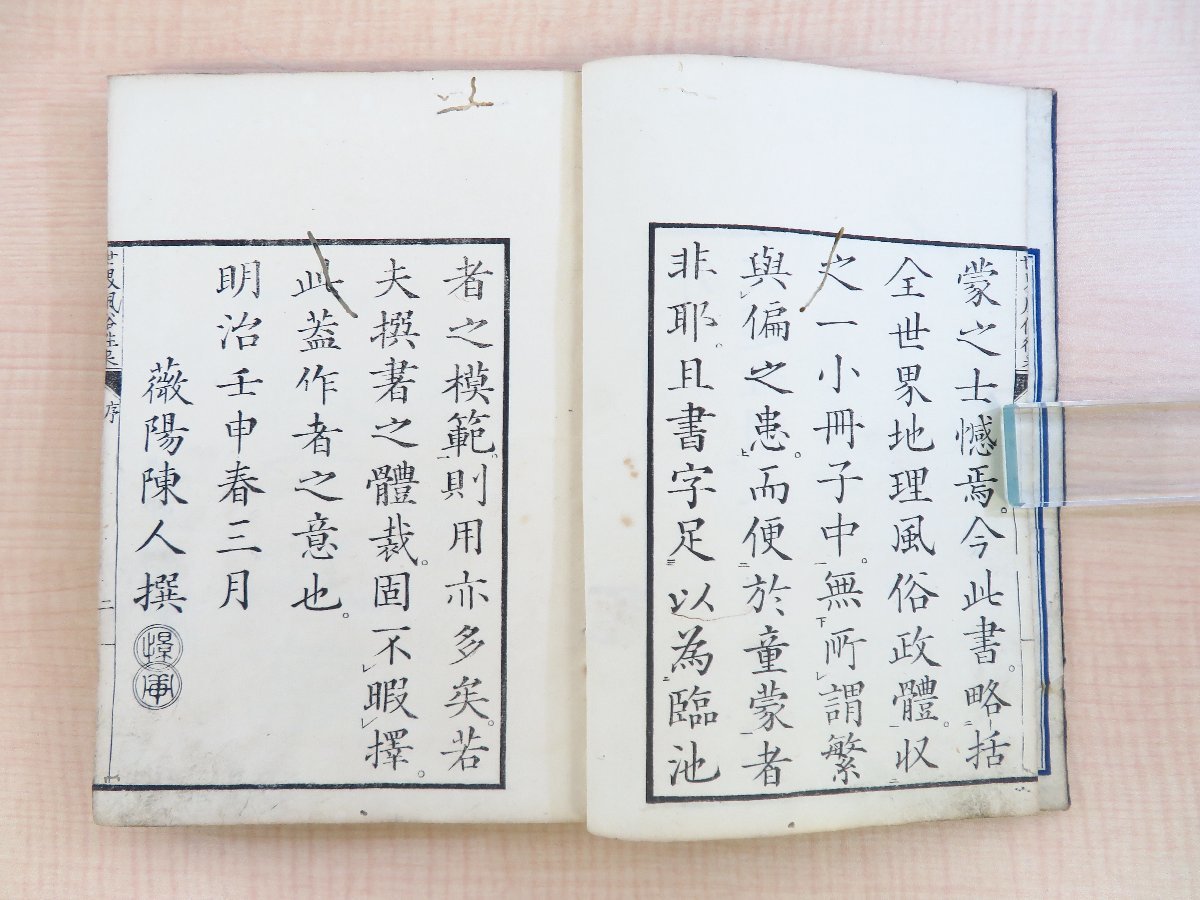 蒙之士憾焉。今此書。略括
全世界地理風俗政體。収
之一小冊子中。無所謂繁
與偏之患。而便於童蒙者
非耶。且書字足以為臨池
者之模範。則用亦多矣。若
夫撰著之體裁。固不暇擇。
此蓋作者之意也。
明治壬申春三月
薇陽陳人撰
序
二